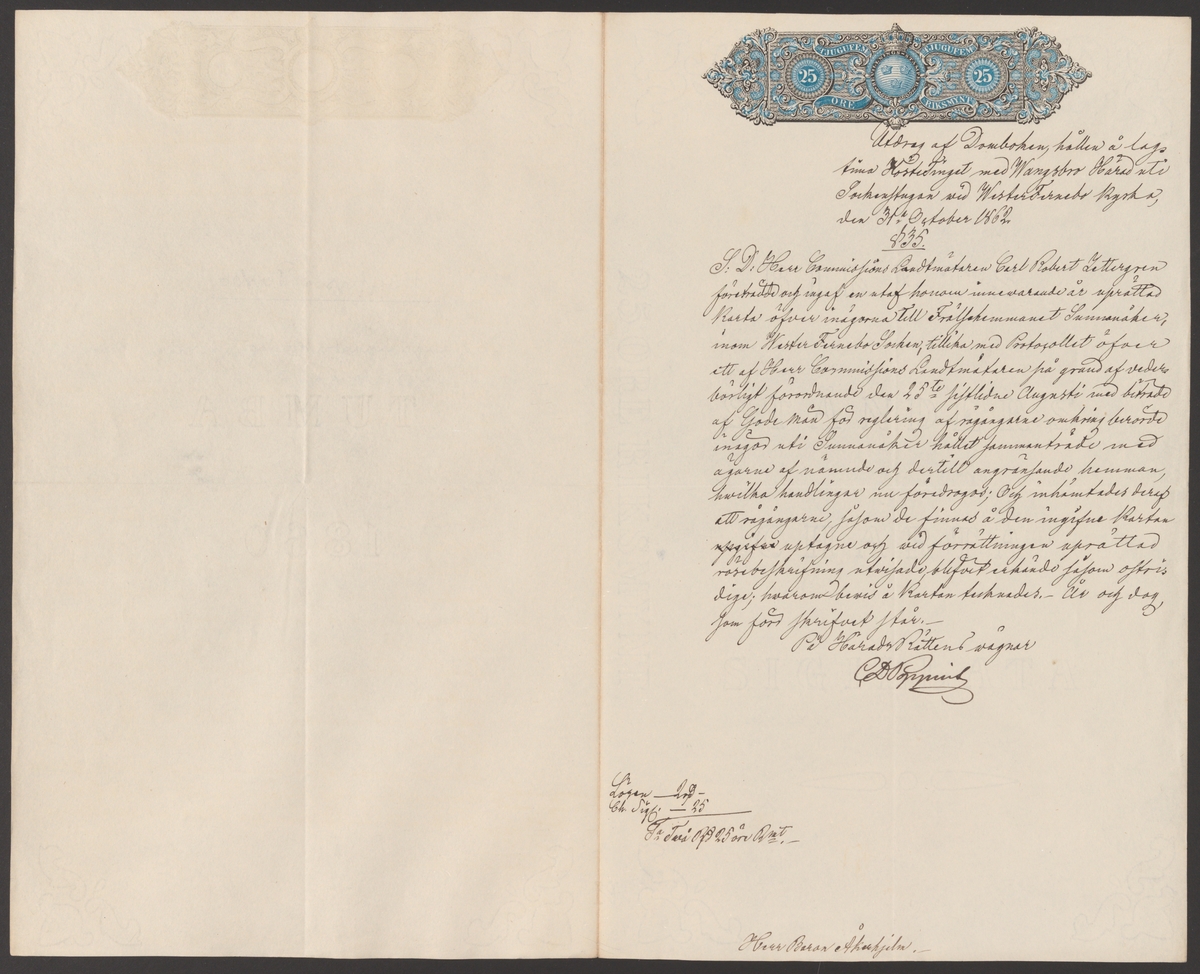 TJUGUFEM TJUGUFEM
25 25
ÖRE RIKSMYNT
Utdrag af Domboken, hållen å lag-
tima Höstetinget med Wangsbro Härad uti
Sockenstugan vid Wester Fernebo Kyrka,
den 31ta October 1862.
§ 35.
S. D. Herr Commissions Landtmätaren Carl Robert Zettergren
företrädde och ingaf en utaf honom innewarande år uprättad
Karta öfver inägorna till Frälsehemmanet Sunnanåker,
inom Wester Fernebo Socken, tillika med Protocollet öfver
ett af Herr Commissions Landtmätaren på grund af veder-
börligt förordnande den 25te sistlidne Augusti med biträde
af Gode Män för reglering af rågångarne omkring berörde
inägor uti Sunnanåker hållet sammanträde med
ägarne af nämnde och dertill angränsande hemman,
hwilka handlingar nu föredrogos; Och inhämtades deraf
att rågångarne, såsom de finnas å den ingifne Kartan
uptagne och vid förrättningen uprättad
rösebeskrifning utvisade, blifvit erkände såsom ostri-
dige; hvarom bevis å Kartan tecknades.- År och dag,
som förr skrifvet står.-
På Härads Rättens vägnar
Lösen — 2 rd -
Ch. Sig. — 25
Sa Två Rd 25 öre Rmt.-
Herr Baron Åkerhjelm.-